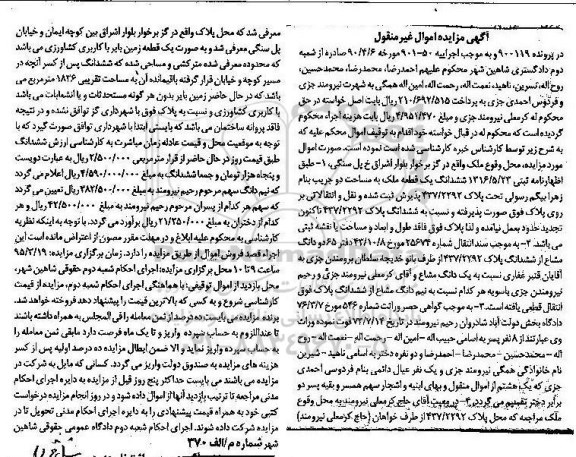 آگهی مزایده اموال غیرمنقول
در پرونده ۹۰۰۱۱۹ و به موجب اجراییه ۵۰-۹۰۱ مورخه ۹۰/۴/۶ صادره از شعبه
دوم دادگستری شاهین شهر محکوم علیهم احمدرضا، محمدرضا، محمدحسین،
روح اله، نسرین، ناهید، نعمت اله، رحمت اله، امین اله همگی به شهرت نیرومند جزی
و فردوس احمدی جزی به پرداخت ۲۱۰/۶۹۲/۵۱۵ ریال بابت اصل خواسته در حق
محکوم له کرمعلی نیرومند جزی و مبلغ ۴/۹۵۱/۴۷۰ ریال بابت هزینه اجراء محکوم
گردیده است که محکوم له در قبال خواسته خود اقدام به توقیف اموال محکم علیه که
به شرح زیر توسط کارشناس خبره کارشناسی شده است نموده است. صورت اموال
مورد مزایده، محل وقوع ملک واقع در گز برخوار بلوار اشراق خ پل سنگی، ۱- طبق
اظهارنامه ثبتی ۱۳۱۶/۵/۲۳ ششدانگ یک قطعه ملک به مساحت دو جریب بنام
زهرا بیگم رسولی تحت پلاک ۴۳۷/۲۲۹۲ پذیرش ثبت شده و نقل و انتقالاتی بر
روی پلاک فوق صورت پذیرفته و نسبت به ششدانگ پلاک ۴۳۷/۲۲۹۲ تاکنون
تجدید حدود بعمل نیامده و لذا پلاک فوق فاقد طول و ابعاد و مساحت یا نقشه ثبتی
می باشد. ۲- به موجب سند انتقال شماره ۲۵۶۷۴ مورخ ۴۳/۱۰/۸ دفتر ۶۵ دو دانگ
مشاع از ششدانگ پلاک ۴۳۷/۲۲۹۲ از طرف بانو خدیجه سلطان برومندن جزی به
آقایان قنبر غفاری نسبت به یک دانگ مشاع و آقای کرمعلی نیرومند جزی و رحیم
نیرومندن جزی بالسویه هر کدام نسبت به نیم دانگ مشاع از ششدانگ پلاک فوق
انتقال قطعی یافته است. ۳- به موجب گواهی حصر وراثت شماره ۵۴۶ مورخ ۷۶/۳/۷
دادگاه بخش دولت آباد شادروان رحیم نیرومند در تاریخ ۷۲/۷/۱۲ فوت نموده وراث
وی عبارتند از ۸ نفر پسر به اسامی حبیب اله - امین اله - رحمت اله - نعمت اله - روح
اله - محمدحسین - محمدرضا - احمدرضا و دو نفره دختر به اسامی ناهید - شیرین
نام خانوادگی همگی نیرومند جزی و یک نفر عیال دائمی بنام فردوسی احمدی
جزی که یک هشتم از اموال منقول و بهای ابنیه و اشجار سهم همسر و بقیه پسر دو
برابر دختر تقسیم می گردد. ۴- در معیت آقای حاج کرمعلی نیرومند به محل وقوع
ملک مراجعه که محل پلاک ۴۳۷/۲۲۹۲ از طرف خواهان (حاج کرمعلی نیرومند)
معرفی شد که محل پلاک واقع در گز برخوار بلوار اشراق بین کوچه ایمان و خیابان
پل سنگی معرفی شد و به صورت یک قطعه زمین بایر با کاربری کشاورزی می باشد
که محدوده معرفی شده مترکشی و مساحی شده که ششدانگ پس از کسر آنچه در
مسیر کوچه و خیابان قرار گرفته باقیمانده آن به مساحت تقریبی ۱۸۲۶ مترمربع می
باشد که در حال حاضر زمین بایر بدون هر گونه مستحدثات و یا انشعابات می باشد
با کاربری کشاورزی و نسبت به پلاک فوق با شهرداری گز توافق نشده و در نتیجه
فاقد پروانه ساختمان می باشد که بایستی ابتدا با شهرداری توافق صورت گیرد که با
توجه به موقعیت محل و قیمت عادله زمان مباشرت به کارشناسی ارزش ششدانگ
طبق قیمت روز در حال حاضر از قرار متر مربعی ۲/۵۰۰/۰۰۰ ریال به عبارت دویست
و پنجاه هزار تومان و جمعا ششدانگ به مبلغ ۴/۵۹۰/۰۰۰/۰۰۰ ریال اعلام می گردد
که نیم دانگ سهم مرحوم رحیم نیرومند به مبلغ ۳۸۲/۵۰۰/۰۰۰ ریال تعیین می گردد
که سهم هر کدام از پسران مرحوم رحیم نیرومند به مبلغ ۴۲/۵۰۰/۰۰۰ ریال و هر
کدام از دختران به مبلغ ۲۱/۲۵۰/۰۰۰ ریال برآورد می گردد. با توجه به اینکه نظریه
کارشناسی به محکوم علیه ابلاغ و در مهلت مقرر مصون از اعتراض مانده است این
اجراء قصد فروش اموال از طریق مزایده را دارد. زمان برگزاری مزایده: ۹۵/۲/۱۹
ساعت ۹ تا ۱۰ محل برگزاری مزایده: اجرای احکام شعبه دوم حقوقی شاهین شهر،
محل بازدید از اموال توقیفی: با هماهنگی اجرای احکام شعبه دوم، مزایده از قیمت
کارشناسی شروع و به کسی که بالاترین قیمت را پیشنهاد دهد فروخته خواهد شد.
برنده مزایده می بایست: ده درصد از ثمن معامله را فی المجلس به همراه داشته باشند
تا عنداللزوم به حساب سپرده واریز و تا یک ماه فرصت دارد مابقی ثمن معامله را
به حساب سپرده واریز نماید و الا ضمن ابطال مزایده ده درصد اولیه پس از کسر
هزینه های مزایده به صندوق دولت واریز می گردد. کسانی که مایل به شرکت در
مزایده می باشند می بایست حداکثر پنج روز قبل از مزایده به دایره اجرای احکام
مدنی مراجعه تا ترتیب بازدید آنها از اموال داده شود و در روز انجام مزایده درخواست
کتبی خود به همراه قیمت پیشنهادی را به دایره اجرای احکام مدنی تحویل تا در
مزایده شرکت داده شوند. اجرای احکام شعبه دوم دادگاه عمومی حقوقی شاهین
شهر شماره م/الف ۳۷۰